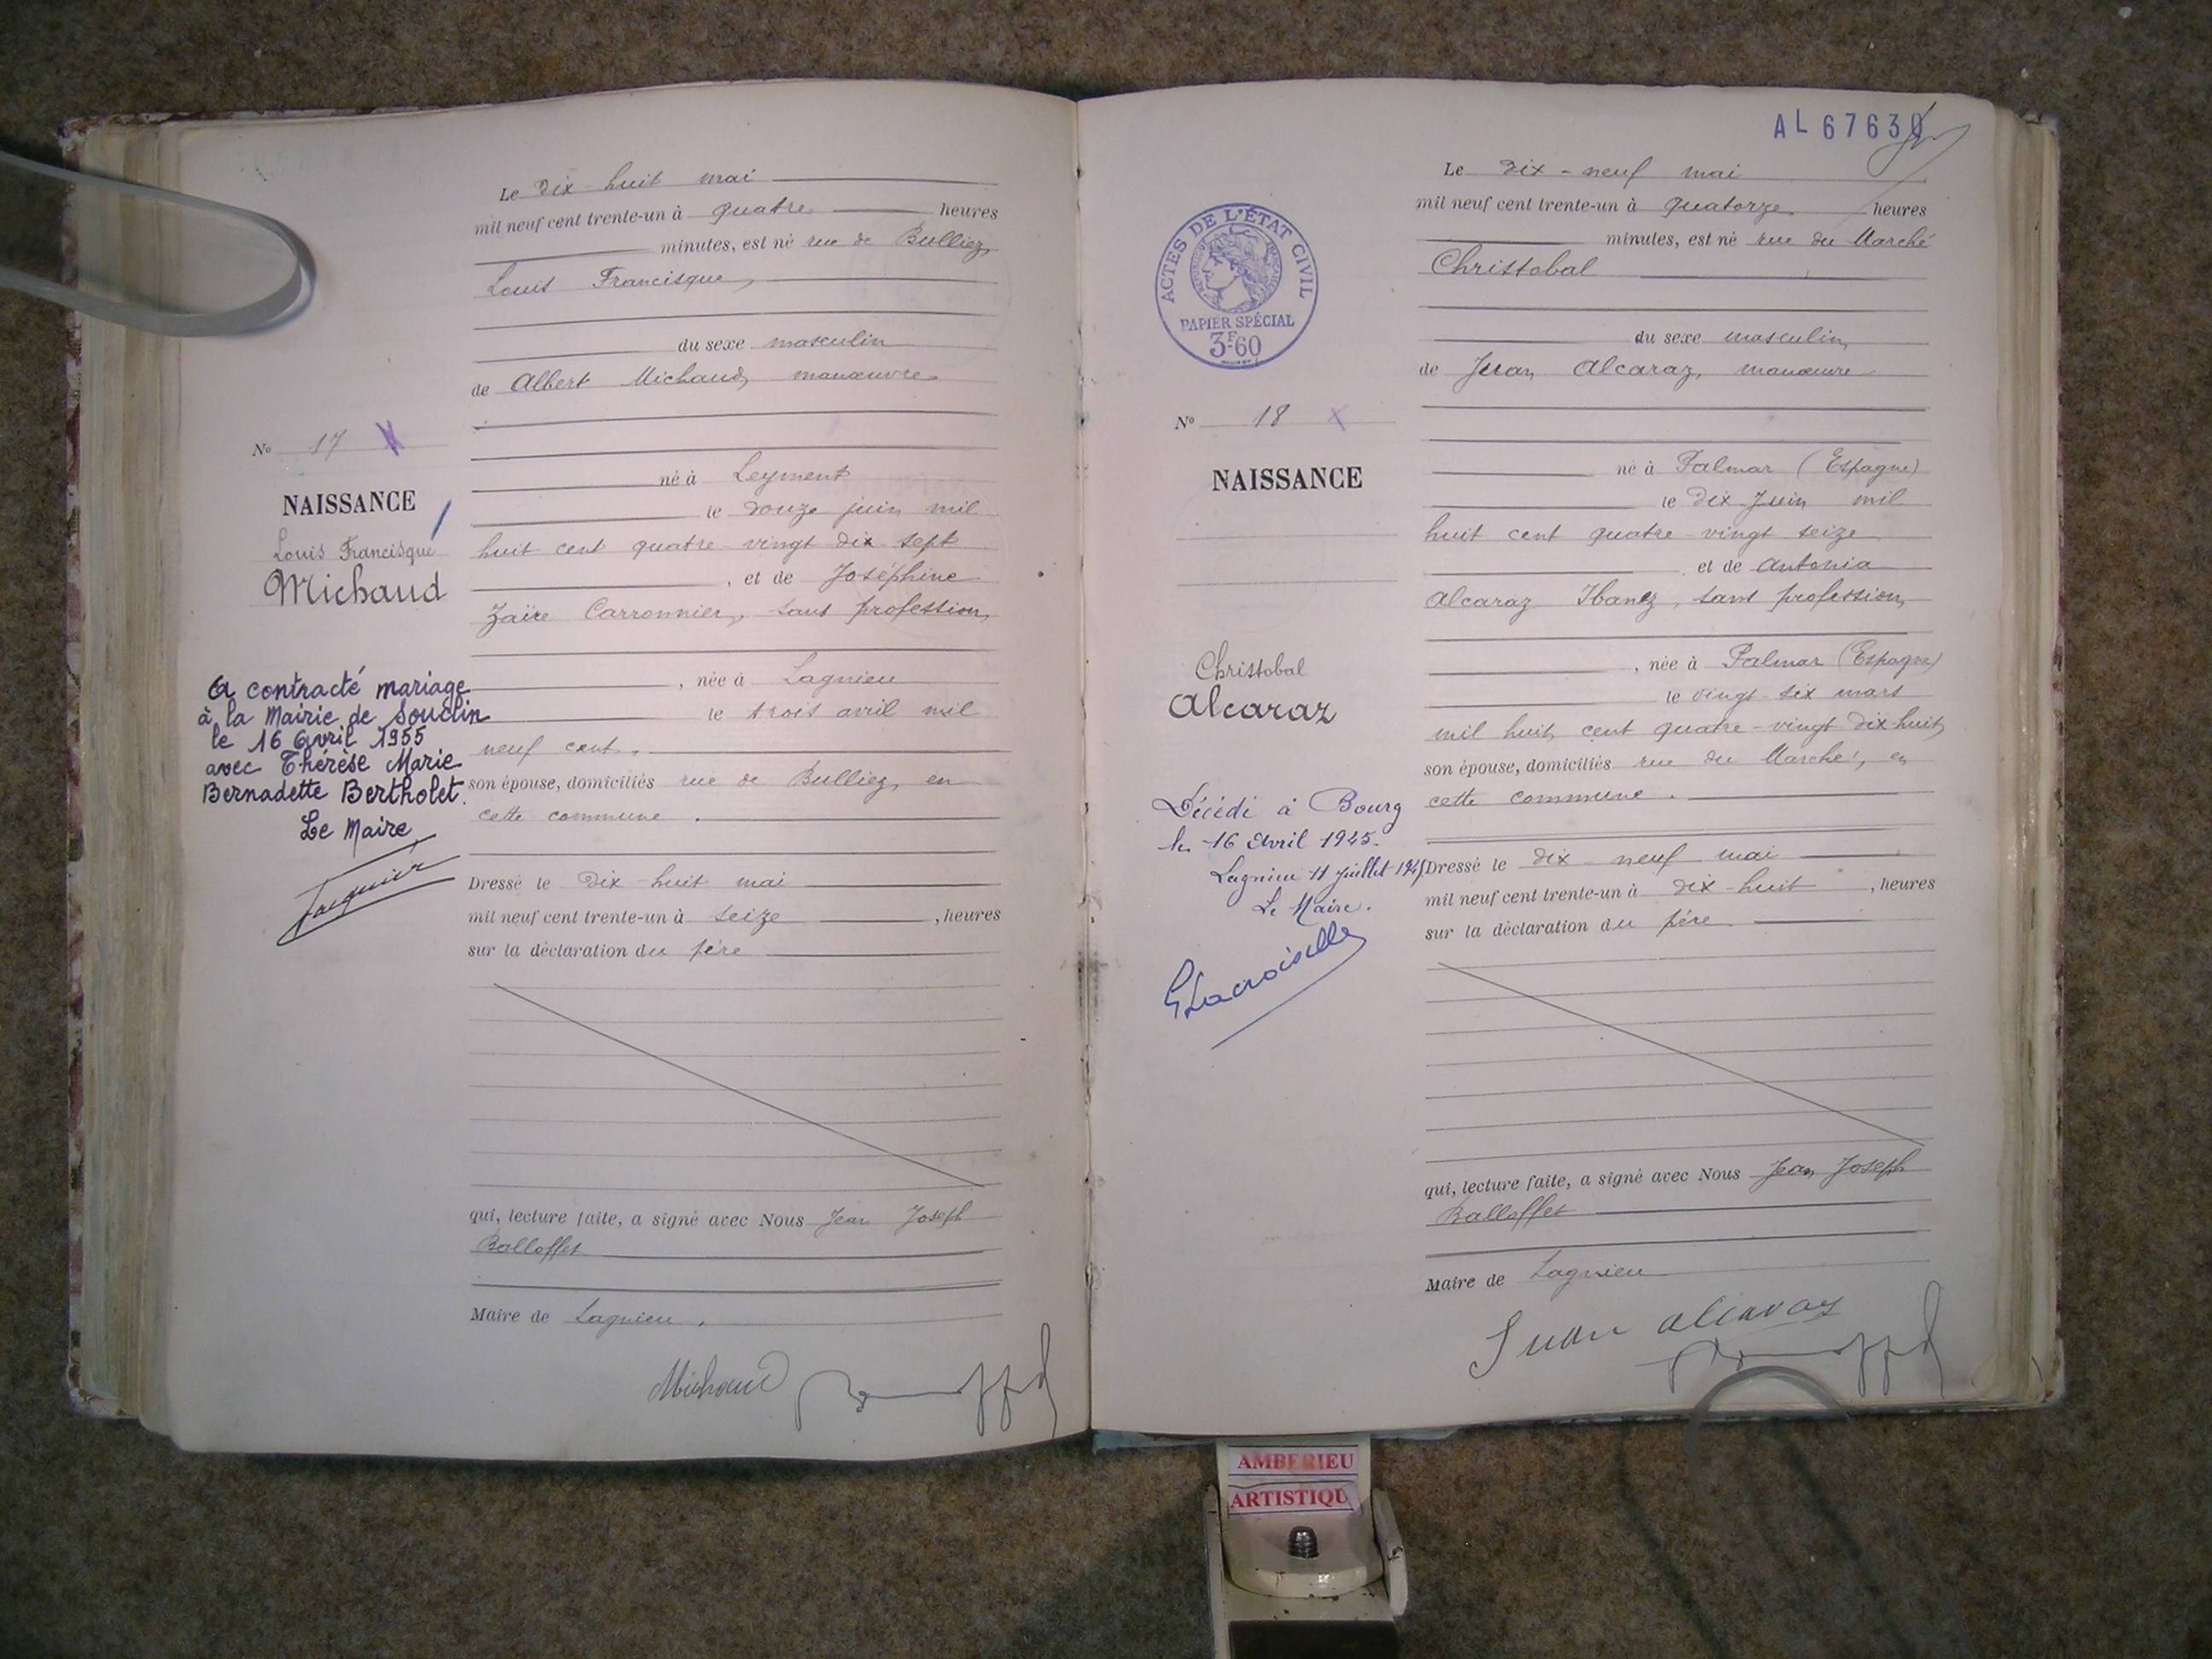 Le dix huit mai
mil neuf cent trente-un à quatre heures
minutes, est né rue de Bulliez
Louis Francisque
du sexe masculin
de Albert Michaud, manœuvre
né à Leyment
le douze juin mil
huit cent quatre vingt dix sept
, et de Joséphine
Zaïre Carronnier, sans profession,
, née à Lagnieu
le trois avril mil
neuf cent.
son épouse, domiciliés rue de Bulliez, en
cette commune.
Dressé le dix huit mai
mil neuf cent trente-un à seize , heures
sur la déclaration du père
qui, lecture faite, a signé avec Nous Jean Joseph
Balloffet
Maire de Lagnieu.
Michaud
No 17
NAISSANCE
Louis Francisque
Michaud
A contracté mariage
à la Mairie de Souclin
le 16 Avril 1955
avec Thérèse Marie
Bernadette Bertholet.
Le Maire
AL 67630
ACTES DE L'ÉTAT CIVIL
PAPIER SPÉCIAL
3F60
Le dix-neuf mai
mil neuf cent trente-un à quatorze heures
minutes, est né rue du Marché
Christobal
du sexe masculin,
de Juan Alcaraz, manœuvre
né à Palmar (Espagne)
le dix Juin mil
huit cent quatre vingt seize
et de Antonia
Alcaraz Ibanez, sans profession,
, née à Palmar (Espagne)
le vingt-six mars
mil huit cent quatre-vingt dix-huit
son épouse, domiciliés rue du Marché, en
cette commune.
Dressé le dix neuf mai
mil neuf cent trente-un à dix-huit , heures
sur la déclaration du père
qui, lecture faite, a signé avec Nous Jean Joseph
Balloffet
Maire de Lagnieu
Juan Alcaraz
No 18
NAISSANCE
Christobal
Alcaraz
Décédé à Bourg
le 16 Avril 1945.
Lagnieu 11 juillet 1945
Le Maire.
GLacroiselle
AMBERIEU
ARTISTIQU